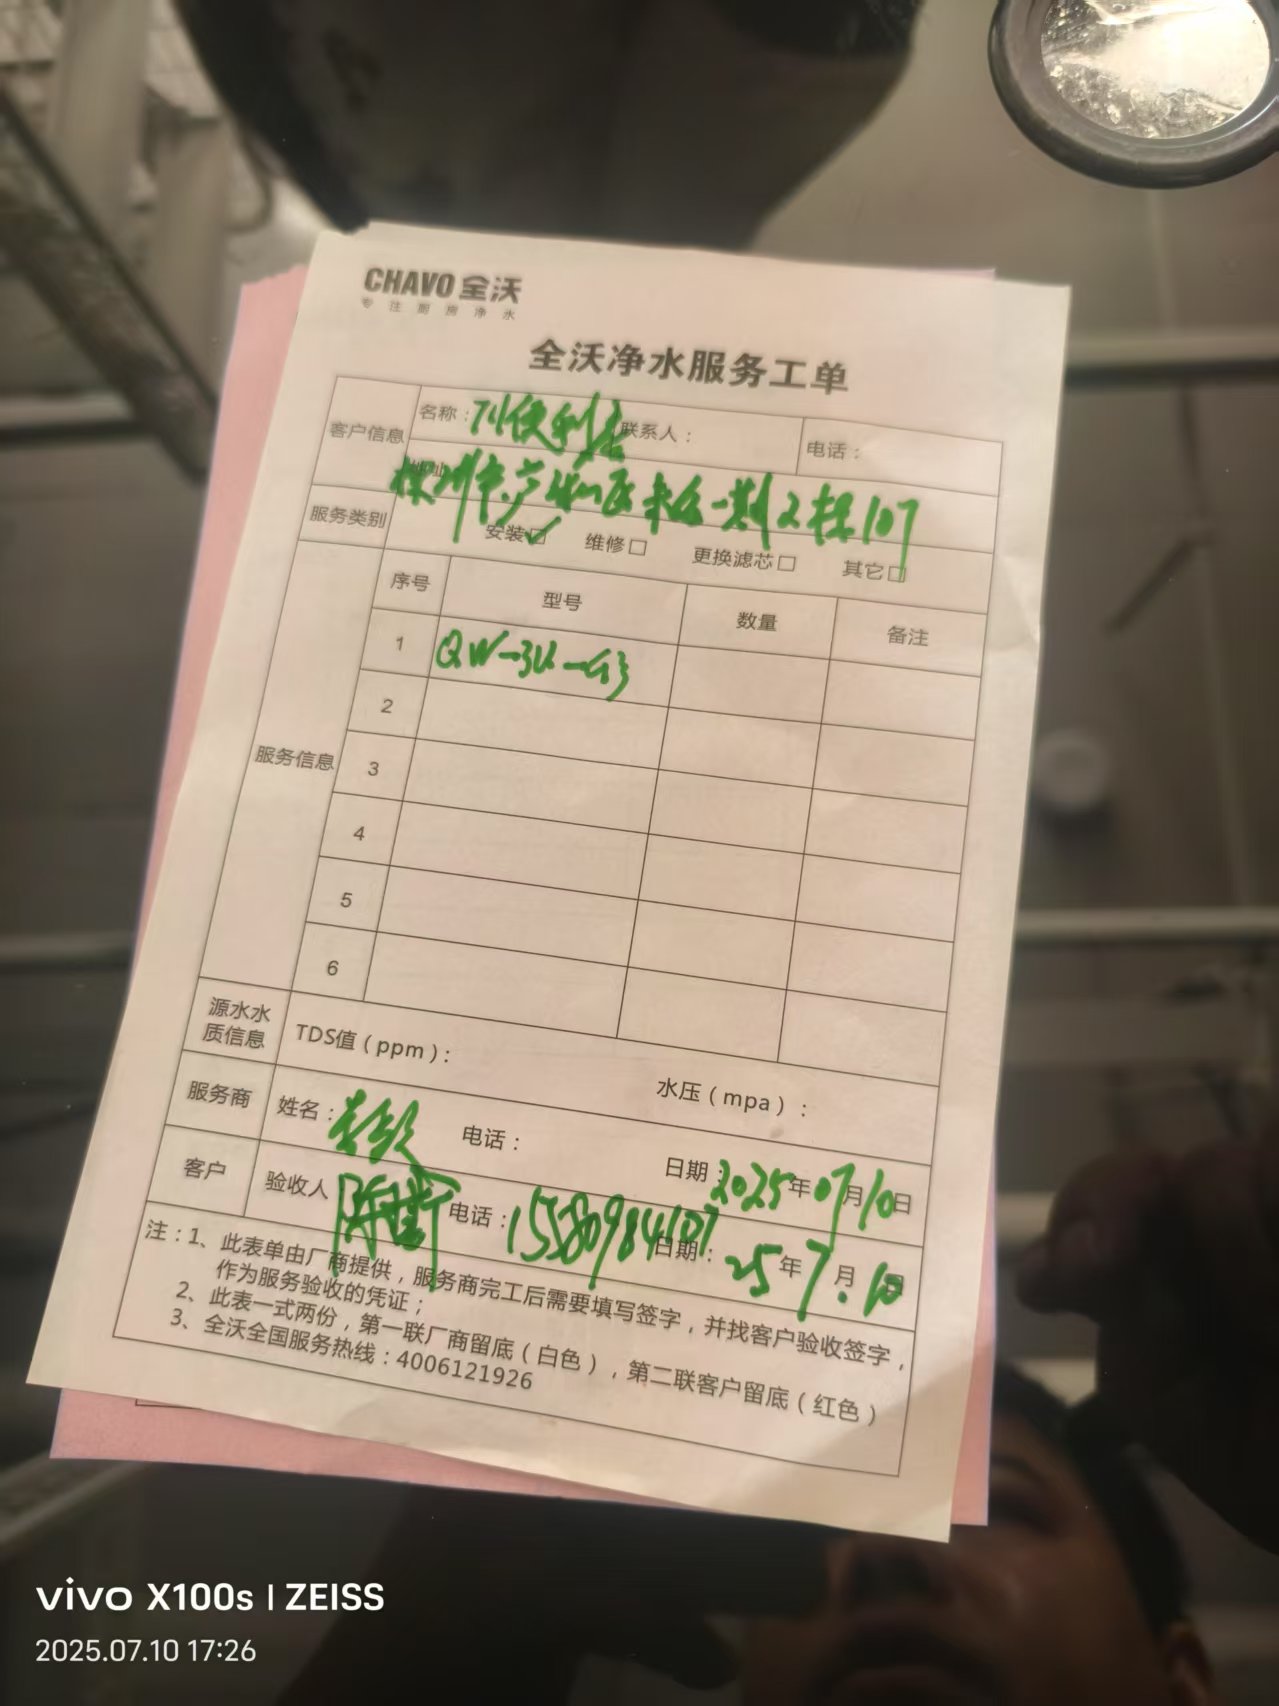 CHAVO 全沃
专注厨房净水
全沃净水服务工单
客户信息 名称：711便利店 联系人： 电话：
地址 株洲市芦淞区 一期2栋107
服务类别 安装☑ 维修□ 更换滤芯□ 其它□
服务信息 序号 型号 数量 备注
1 QW-3U-G3
2
3
4
5
6
源水水质信息 TDS值（ppm）： 水压（mpa）：
服务商 姓名： 电话： 日期：2025年07月10日
客户 验收人 电话：15580984107 日期：25年7月10日
注：1、此表单由厂商提供，服务商完工后需要填写签字，并找客户验收签字，
作为服务验收的凭证；
2、此表一式两份，第一联厂商留底（白色），第二联客户留底（红色）
3、全沃全国服务热线：4006121926
vivo X100s | ZEISS
2025.07.10 17:26